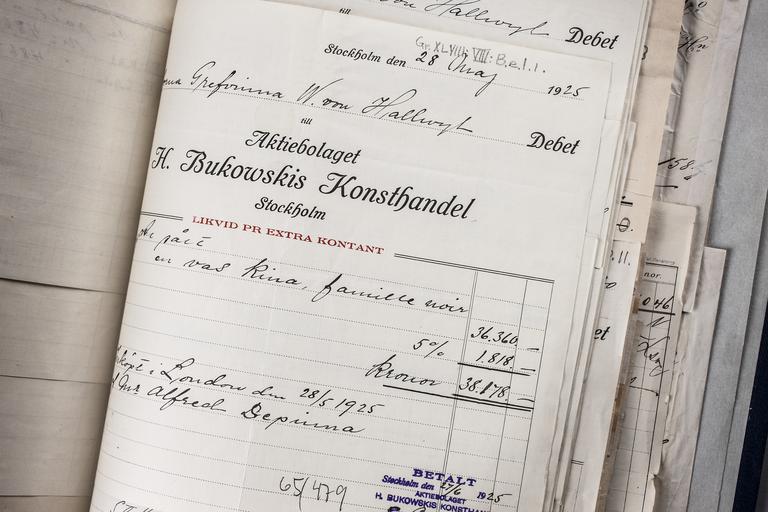 von Hallwyl
till
Debet
Gr. XLVIII: VIII: B.e.l.1.
Stockholm den 28 Maj 1925
Grefvinna W. von Hallwyl
till
Debet
Aktiebolaget
H. Bukowskis Konsthandel
Stockholm
LIKVID PR EXTRA KONTANT
en vas Kina, famille noir
36.360. —
5% 1.818. —
Kronor 38.178. —
i London den 28/5 1925
Mr Alfred Depinna
65/479
BETALT
Stockholm den 27/6 1925
AKTIEBOLAGET
H. BUKOWSKIS KONSTHAN
158.
nor.